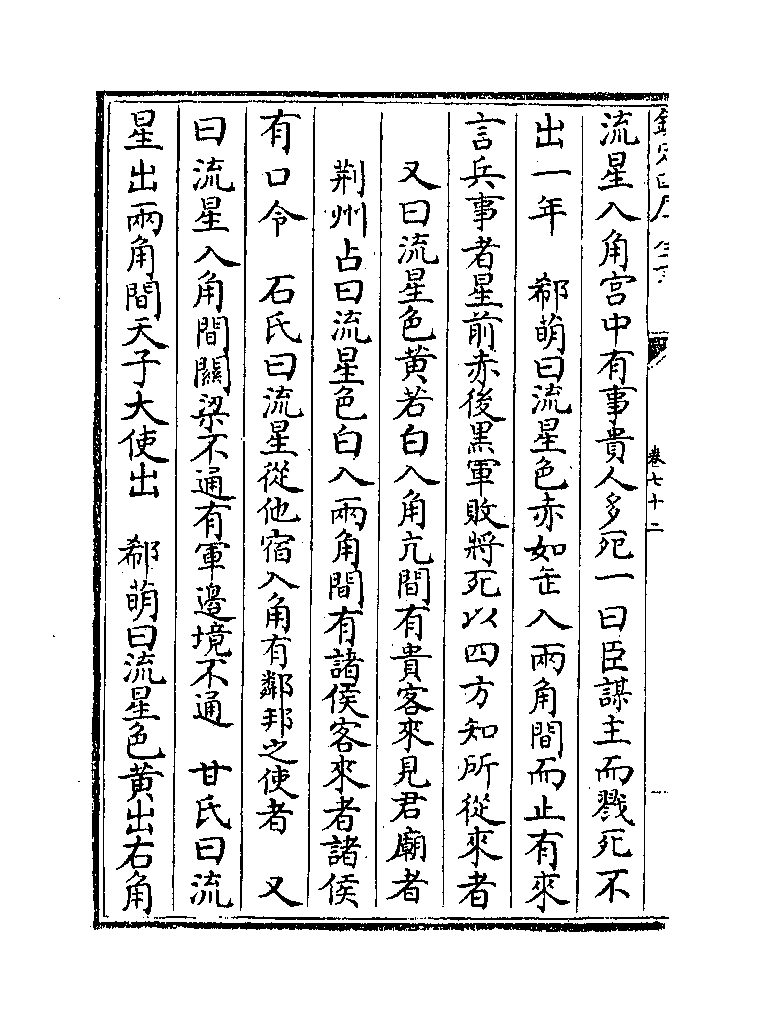 卷七十二
流星入角宫中有事貴人多死一曰臣謀主而戮死不
出一年　郗萌曰流星色赤如缶入兩角間而止有來
言兵事者星前赤後黒軍敗將死以四方知所從來者
又曰流星色黄若白入角亢間有貴客來見君廟者
荆州占曰流星色白入兩角間有諸侯客來者諸侯
有口令　石氏曰流星從他宿入角有鄰邦之使者　又
曰流星入角間關梁不通有軍邉境不通　甘氏曰流
星出兩角間天子大使出　郗萌曰流星色黄出右角